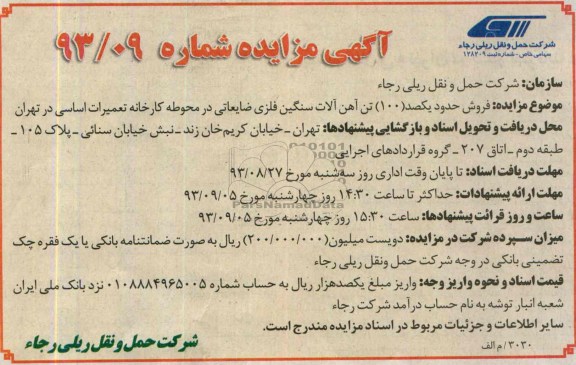 شرکت حمل و نقل ریلی رجاء
سهامی خاص - شماره ثبت ۱۲۸۲۰۹
آگهی مزایده شماره ۹۳/۰۹
سازمان: شرکت حمل و نقل ریلی رجاء
موضوع مزایده: فروش حدود یکصد(۱۰۰) تن آهن آلات سنگین فلزی ضایعاتی در محوطه کارخانه تعمیرات اساسی در تهران
محل دریافت و تحویل اسناد و بازگشایی پیشنهادها: تهران - خیابان کریم‌خان زند - نبش خیابان سنائی - پلاک ۱۰۵ -
طبقه دوم - اتاق ۲۰۷ - گروه قراردادهای اجرایی
مهلت دریافت اسناد: تا پایان وقت اداری روز سه‌شنبه مورخ ۹۳/۰۸/۲۷
مهلت ارائه پیشنهادات: حداکثر تا ساعت ۱۴:۳۰ روز چهارشنبه مورخ ۹۳/۰۹/۰۵
ساعت و روز قرائت پیشنهادها: ساعت ۱۵:۳۰ روز چهارشنبه مورخ ۹۳/۰۹/۰۵
میزان سپرده شرکت در مزایده: دویست میلیون(۲۰۰/۰۰۰/۰۰۰) ریال به صورت ضمانتنامه بانکی یا یک فقره چک
تضمینی بانکی در وجه شرکت حمل ونقل ریلی رجاء
قیمت اسناد و نحوه واریز وجه: واریز مبلغ یکصدهزار ریال به حساب شماره ۰۱۰۸۸۸۴۹۶۵۰۰۵ نزد بانک ملی ایران
شعبه انبار توشه به نام حساب درآمد شرکت رجاء
سایر اطلاعات و جزئیات مربوط در اسناد مزایده مندرج است.
شرکت حمل و نقل ریلی رجاء
۳۰۳۰/ م الف
ParsNamadData